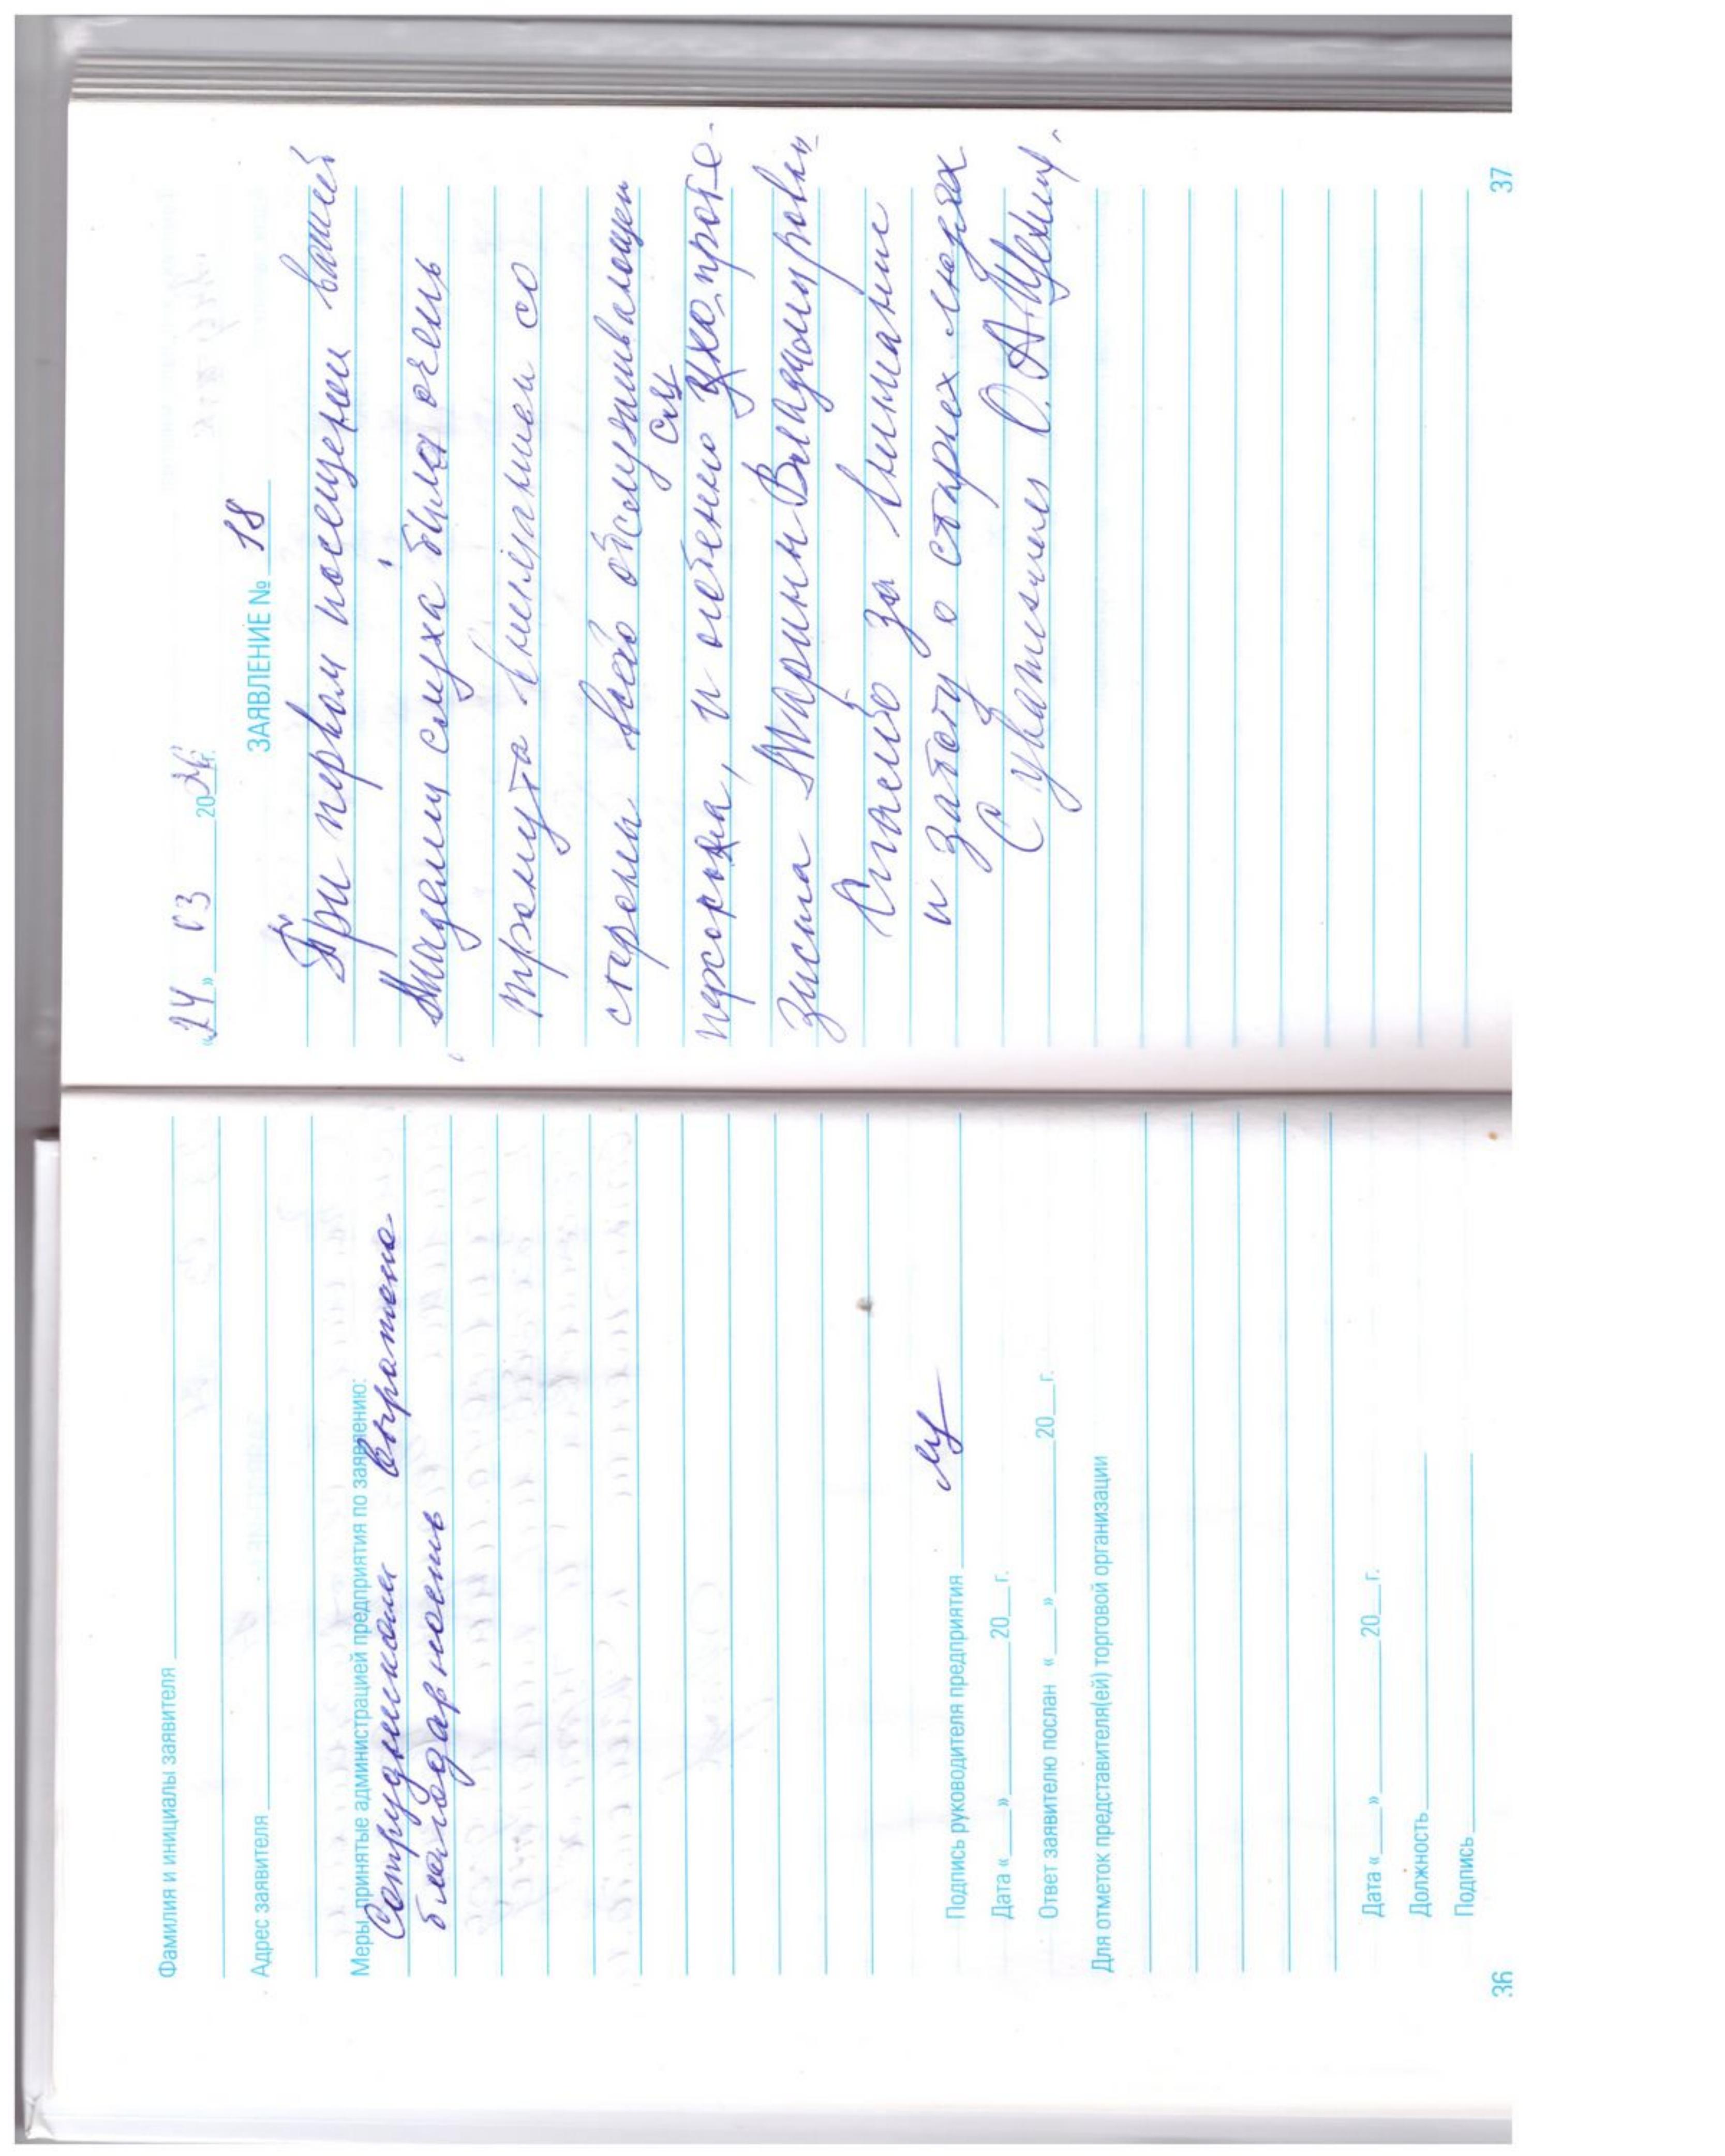 Фамилия и инициалы заявителя
Адрес заявителя
Меры, принятые администрацией предприятия по заявлению:
Сотрудникам выражена
благодарность
Подпись руководителя предприятия
Дата «___»________20__г.
Ответ заявителю послан «___»________20__г.
Для отметок представителя(ей) торговой организации
Дата «___»________20__г.
Должность
Подпись
36
«24» 03 20 г.
ЗАЯВЛЕНИЕ № 18
При первом посещении вашей
Академии слуха была очень
тронута вниманием со
стороны всего обслуживающеи
персонала, и особенно слухопроте-
зиста Марины Владимировны
Спасибо за внимание
и заботу о старых людях
С уважением О.А.
37